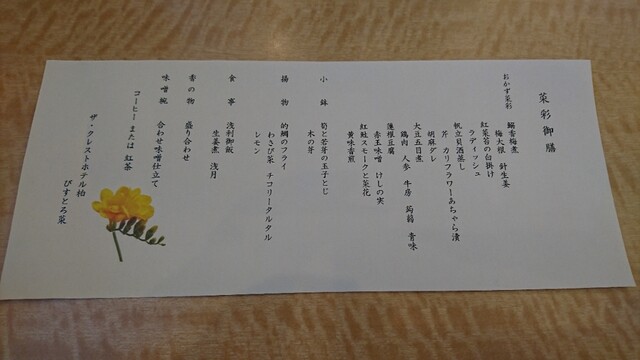 菜彩御膳
おかず菜彩
鰯香梅煮
梅大根 針生姜
紅菜苔の白掛け
ラディッシュ
帆立貝酒蒸し
芹 カリフラワーあちゃら漬
胡麻ダレ
大豆五目煮
鶏肉 人参 牛蒡 蒟蒻 青味
蓮根豆腐
赤玉味噌 けしの実
紅鮭スモークと菜花
黄味香煎
小鉢 筍と若芽の玉子とじ
木の芽
揚物 的鯛のフライ
わさび菜 チコリータルタル
レモン
食事 浅利御飯
生姜煮 浅月
香の物 盛り合わせ
味噌椀 合わせ味噌仕立て
コーヒー または 紅茶
ザ・クレストホテル柏
びすとろ菜